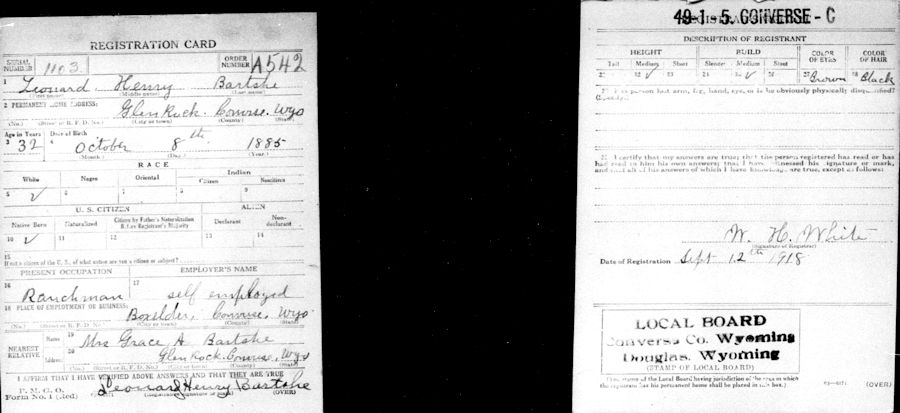 REGISTRATION CARD
SERIAL NUMBER 1103
ORDER NUMBER A542
1 Leonard Henry Bartshe
(First name) (Middle name) (Last name)
2 PERMANENT HOME ADDRESS:
Glen Rock. Converse, Wyo
(No.) (Street or R. F. D. No.) (City or town) (County) (State)
Age in Years Date of Birth
3 32 4 October 8th 1885
(Month.) (Day.) (Year.)
RACE
White Negro Oriental Indian
Citizen Noncitizen
5 ✓ 6 7 8 9
U. S. CITIZEN ALIEN
Native Born Naturalized Citizen by Father's Naturalization Before Registrant's Majority Declarant Non-declarant
10 ✓ 11 12 13 14
15
If not a citizen of the U. S., of what nation are you a citizen or subject?
PRESENT OCCUPATION EMPLOYER'S NAME
16 Ranchman 17 self employed
18 PLACE OF EMPLOYMENT OR BUSINESS:
Boxelder, Converse, Wyo
(No.) (Street or R. F. D. No.) (City or town) (County) (State)
NEAREST RELATIVE
Name 19 Mrs Grace A. Bartshe
Address 20 Glen Rock. Converse, Wyo
(No.) (Street or R. F. D. No.) (City or town) (County) (State)
I AFFIRM THAT I HAVE VERIFIED ABOVE ANSWERS AND THAT THEY ARE TRUE
P. M. G. O.
Form No. 1 (Red) Leonard Henry Bartshe (OVER)
49-1-5. CONVERSE - C
DESCRIPTION OF REGISTRANT
HEIGHT BUILD COLOR OF EYES COLOR OF HAIR
Tall Medium Short Slender Medium Stout
21 22 ✓ 23 24 25 ✓ 26 27 Brown 28 Black
29 Has person lost arm, leg, hand, eye, or is he obviously physically disqualified?
(Specify.)
30 I certify that my answers are true; that the person registered has read or has
had read to him his own answers; that I have witnessed his signature or mark,
and that all of his answers of which I have knowledge are true, except as follows:
W. H. White
(Signature of Registrar)
Date of Registration Sept 12th 1918
LOCAL BOARD
Converse Co. Wyoming
Douglas, Wyoming
(STAMP OF LOCAL BOARD)
(The stamp of the Local Board having jurisdiction of the area in which
the registrant has his permanent home shall be placed in this box.)
(OVER)